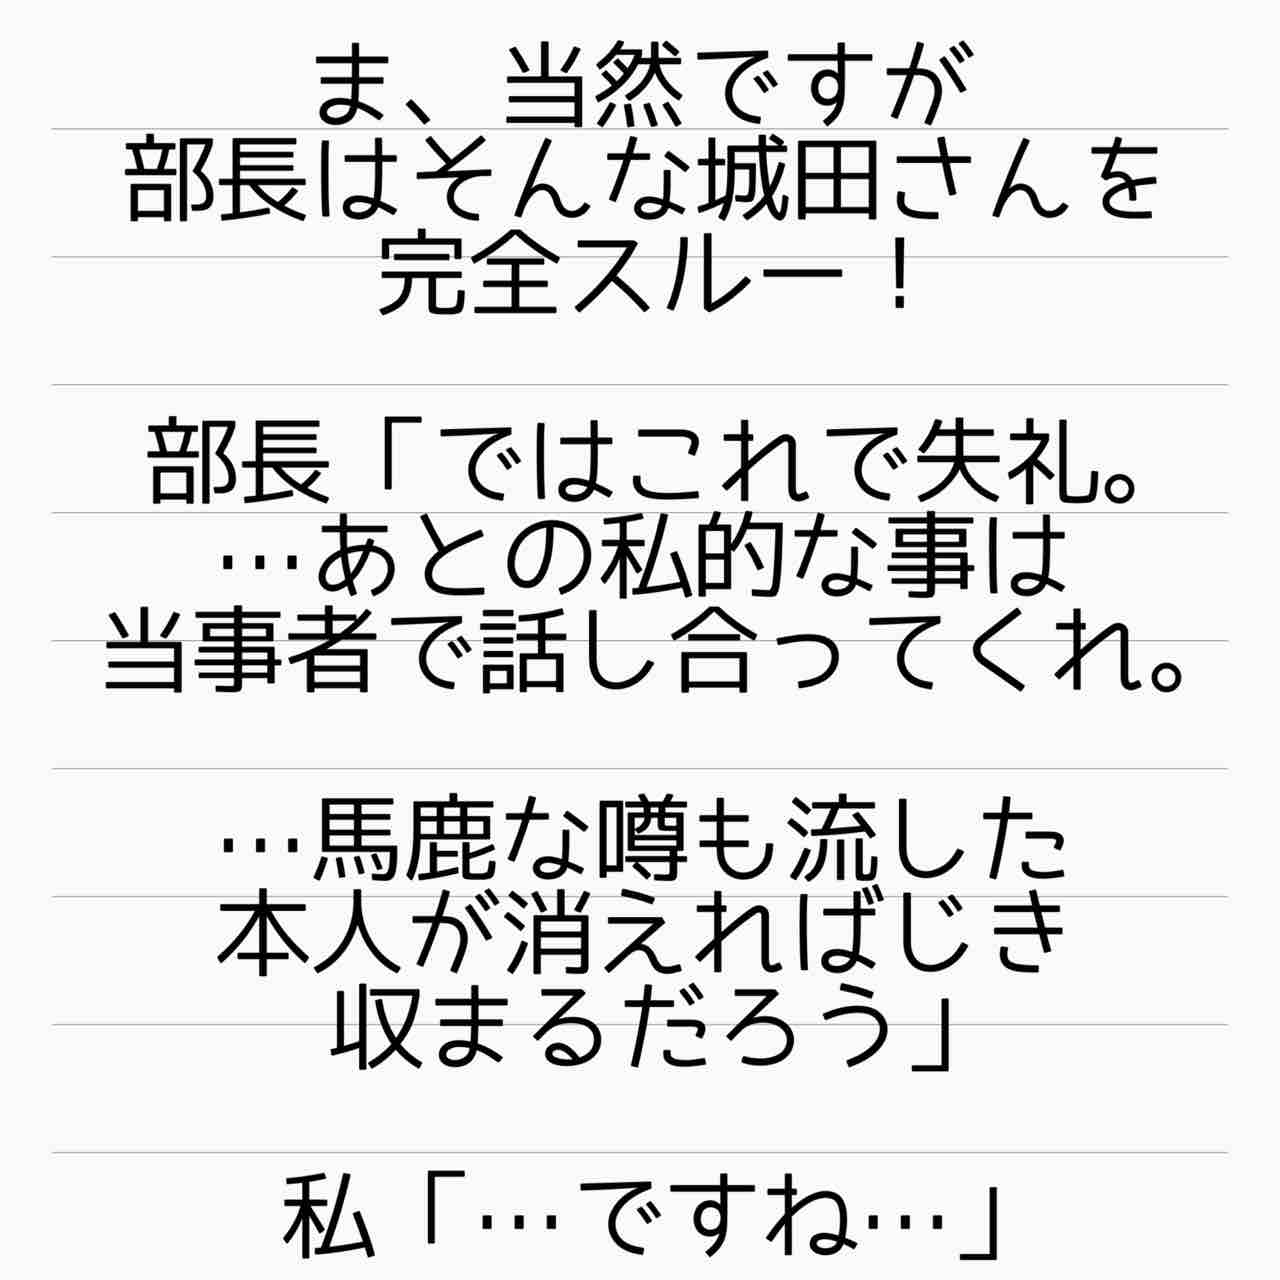 ま、当然ですが
部長はそんな城田さんを
完全スルー！
部長「ではこれで失礼。
…あとの私的な事は
当事者で話し合ってくれ。
…馬鹿な噂も流した
本人が消えればじき
収まるだろう」
私「…ですね…」